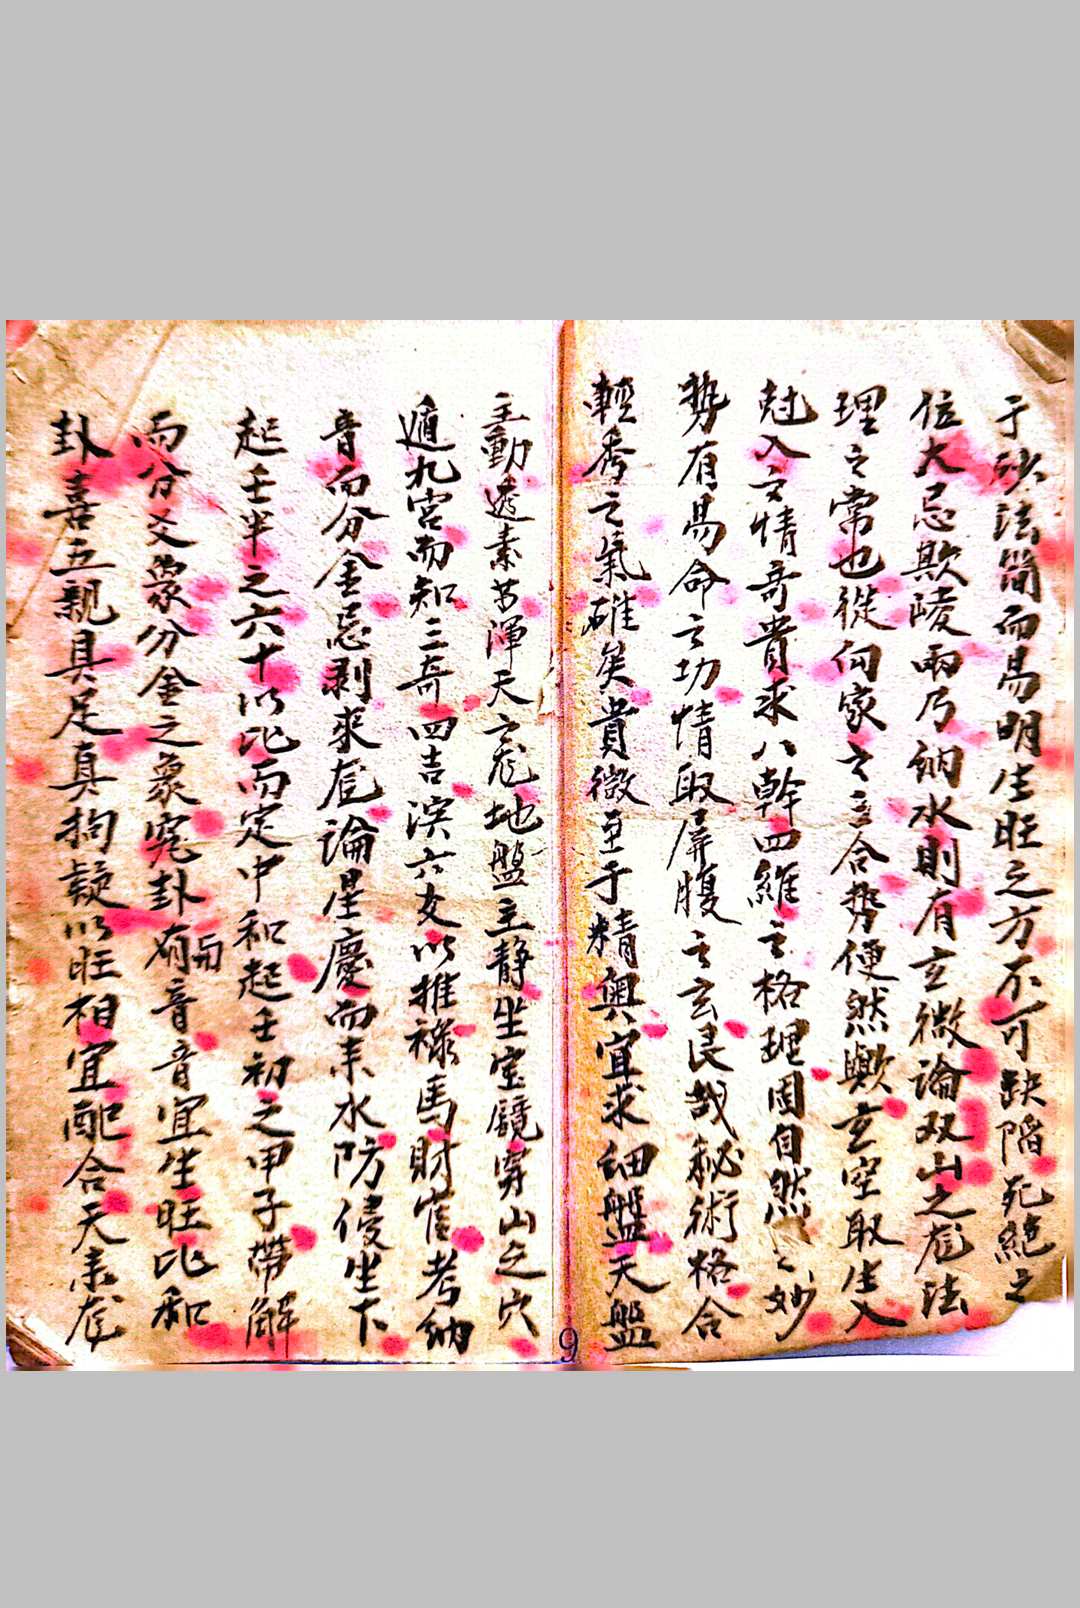 于砂法简而易明生旺之方不可缺陷死絕之
位大忌欺崚兩乃納水則有玄微論双山之庬法
理之常也從向家之立合势便然歟玄空取生入
尅入之情奇貴求八幹四維之格理固自然之妙
势有易命之功情取屏腹之玄良哉秘術格合
輕秀之氣雄矣貴微至于精奥宜求細盤天盤
主動透素书渾天之庬地盤主静坐宝鏡穿山之穴
遁九宮而知三奇四吉演六爻以推祿馬財官考納
音而分金忌剥求庬論星慶而来水防侵坐下
起壬半之六十以比而定中和起壬初之甲子帶解
而分爻象分金之象究卦有音而音宜生旺比和
卦喜五親具足真拘疑以旺相宜配合天来龙
9